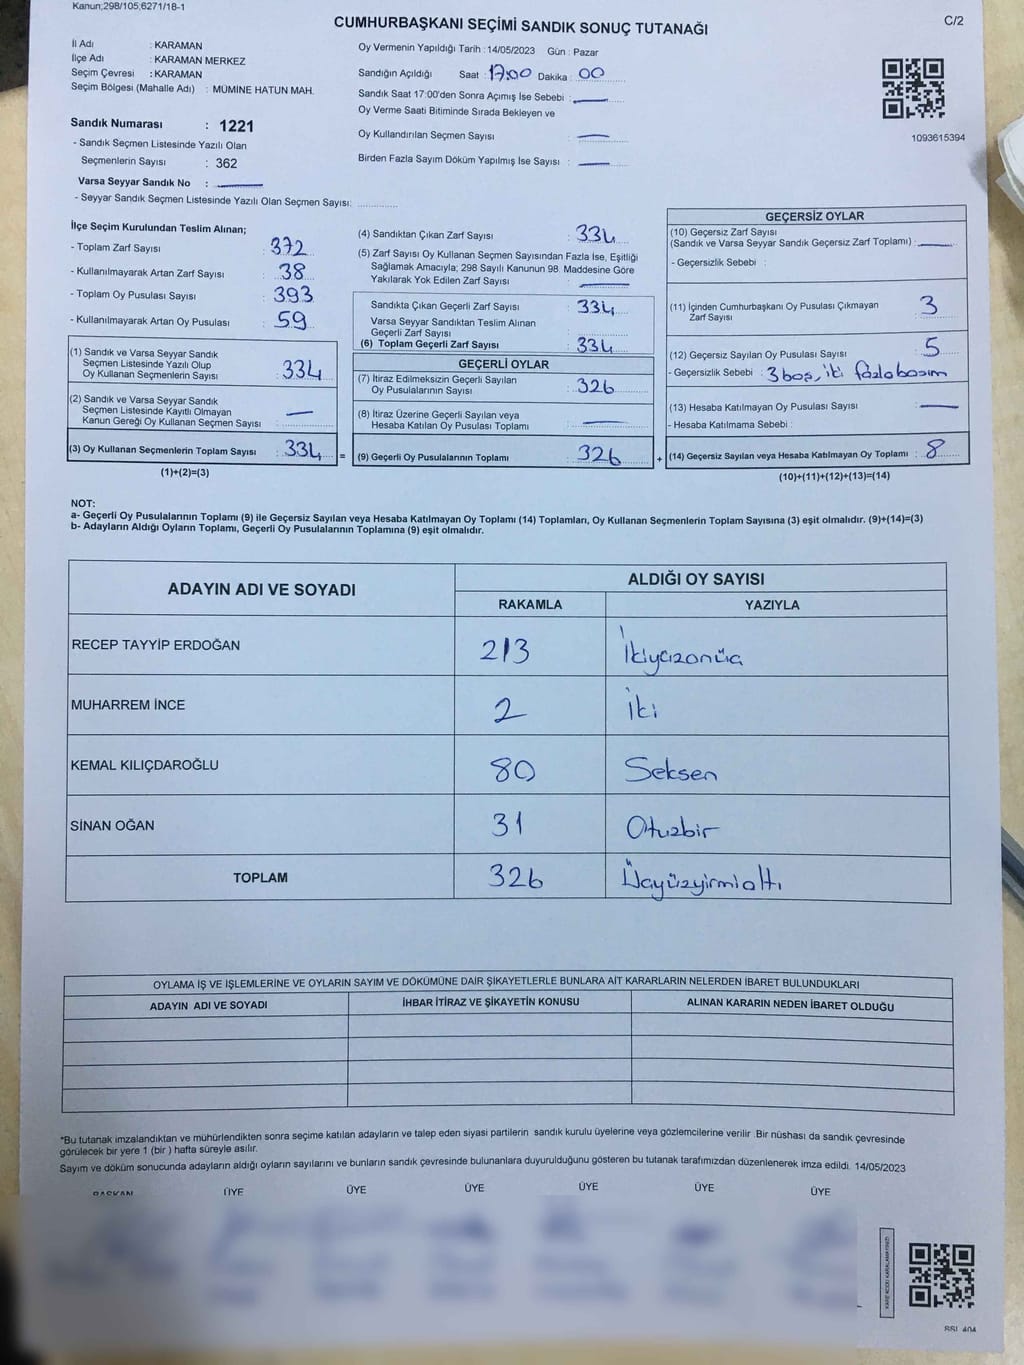 Kanun;298/105;6271/18-1
CUMHURBAŞKANI SEÇİMİ SANDIK SONUÇ TUTANAĞI
C/2
İl Adı : KARAMAN
İlçe Adı : KARAMAN MERKEZ
Seçim Çevresi : KARAMAN
Seçim Bölgesi (Mahalle Adı) : MÜMİNE HATUN MAH.
Sandık Numarası : 1221
- Sandık Seçmen Listesinde Yazılı Olan
Seçmenlerin Sayısı : 362
Varsa Seyyar Sandık No :
- Seyyar Sandık Seçmen Listesinde Yazılı Olan Seçmen Sayısı:
Oy Vermenin Yapıldığı Tarih : 14/05/2023 Gün : Pazar
Sandığın Açıldığı Saat : 17:00 Dakika : 00
Sandık Saat 17:00'den Sonra Açımış İse Sebebi :
Oy Verme Saati Bitiminde Sırada Bekleyen ve
Oy Kullandırılan Seçmen Sayısı :
Birden Fazla Sayım Döküm Yapılmış İse Sayısı :
1093615394
İlçe Seçim Kurulundan Teslim Alınan;
- Toplam Zarf Sayısı : 372
- Kullanılmayarak Artan Zarf Sayısı : 38
- Toplam Oy Pusulası Sayısı : 393
- Kullanılmayarak Artan Oy Pusulası : 59
(1) Sandık ve Varsa Seyyar Sandık
Seçmen Listesinde Yazılı Olup
Oy Kullanan Seçmenlerin Sayısı : 334
(2) Sandık ve Varsa Seyyar Sandık
Seçmen Listesinde Kayıtlı Olmayan
Kanun Gereği Oy Kullanan Seçmen Sayısı :
(3) Oy Kullanan Seçmenlerin Toplam Sayısı : 334 =
(1)+(2)=(3)
(4) Sandıktan Çıkan Zarf Sayısı : 334
(5) Zarf Sayısı Oy Kullanan Seçmen Sayısından Fazla İse, Eşitliği
Sağlamak Amacıyla; 298 Sayılı Kanunun 98. Maddesine Göre
Yakılarak Yok Edilen Zarf Sayısı :
Sandıkta Çıkan Geçerli Zarf Sayısı : 334
Varsa Seyyar Sandıktan Teslim Alınan
Geçerli Zarf Sayısı :
(6) Toplam Geçerli Zarf Sayısı : 334
GEÇERLİ OYLAR
(7) İtiraz Edilmeksizin Geçerli Sayılan
Oy Pusulalarının Sayısı : 326
(8) İtiraz Üzerine Geçerli Sayılan veya
Hesaba Katılan Oy Pusulası Toplamı :
(9) Geçerli Oy Pusulalarının Toplamı : 326 +
GEÇERSİZ OYLAR
(10) Geçersiz Zarf Sayısı
(Sandık ve Varsa Seyyar Sandık Geçersiz Zarf Toplamı) :
- Geçersizlik Sebebi :
(11) İçinden Cumhurbaşkanı Oy Pusulası Çıkmayan
Zarf Sayısı : 3
(12) Geçersiz Sayılan Oy Pusulası Sayısı : 5
- Geçersizlik Sebebi : 3 boş, iki fazla basım
(13) Hesaba Katılmayan Oy Pusulası Sayısı :
- Hesaba Katılmama Sebebi :
(14) Geçersiz Sayılan veya Hesaba Katılmayan Oy Toplamı : 8
(10)+(11)+(12)+(13)=(14)
NOT:
a- Geçerli Oy Pusulalarının Toplamı (9) ile Geçersiz Sayılan veya Hesaba Katılmayan Oy Toplamı (14) Toplamları, Oy Kullanan Seçmenlerin Toplam Sayısına (3) eşit olmalıdır. (9)+(14)=(3)
b- Adayların Aldığı Oyların Toplamı, Geçerli Oy Pusulalarının Toplamına (9) eşit olmalıdır.
ADAYIN ADI VE SOYADI
ALDIĞI OY SAYISI
RAKAMLA YAZIYLA
RECEP TAYYİP ERDOĞAN 213 İkiyüzonüç
MUHARREM İNCE 2 İki
KEMAL KILIÇDAROĞLU 80 Seksen
SİNAN OĞAN 31 Otuzbir
TOPLAM 326 Üçyüzyirmialtı
OYLAMA İŞ VE İŞLEMLERİNE VE OYLARIN SAYIM VE DÖKÜMÜNE DAİR ŞİKAYETLERLE BUNLARA AİT KARARLARIN NELERDEN İBARET BULUNDUKLARI
ADAYIN ADI VE SOYADI İHBAR İTİRAZ VE ŞİKAYETİN KONUSU ALINAN KARARIN NEDEN İBARET OLDUĞU
*Bu tutanak imzalandıktan ve mühürlendikten sonra seçime katılan adayların ve talep eden siyasi partilerin sandık kurulu üyelerine veya gözlemcilerine verilir .Bir nüshası da sandık çevresinde
görülecek bir yere 1 (bir ) hafta süreyle asılır.
Sayım ve döküm sonucunda adayların aldığı oyların sayılarını ve bunların sandık çevresinde bulunanlara duyurulduğunu gösteren bu tutanak tarafımızdan düzenlenerek imza edildi. 14/05/2023
BAŞKAN ÜYE ÜYE ÜYE ÜYE ÜYE ÜYE
KARE KODU KARALAMAYINIZ!